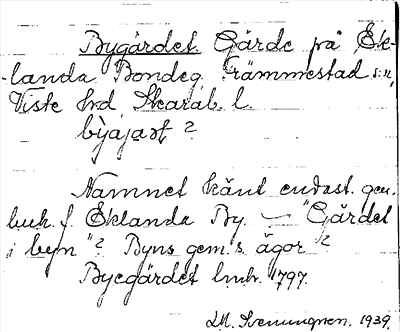 Bygärdet Gärde på Ek-
landa Bondeg. Främmestad s:n,
Viste hd Skarab. l.
bỳajaṣt ?
Namnet känt endast gen.
huh. f. Eklanda By. — "Gärdet
i byn"? Byns gem.s. ägor?
Byegärdet lmh. 1797.
M. Svenungsson. 1939.